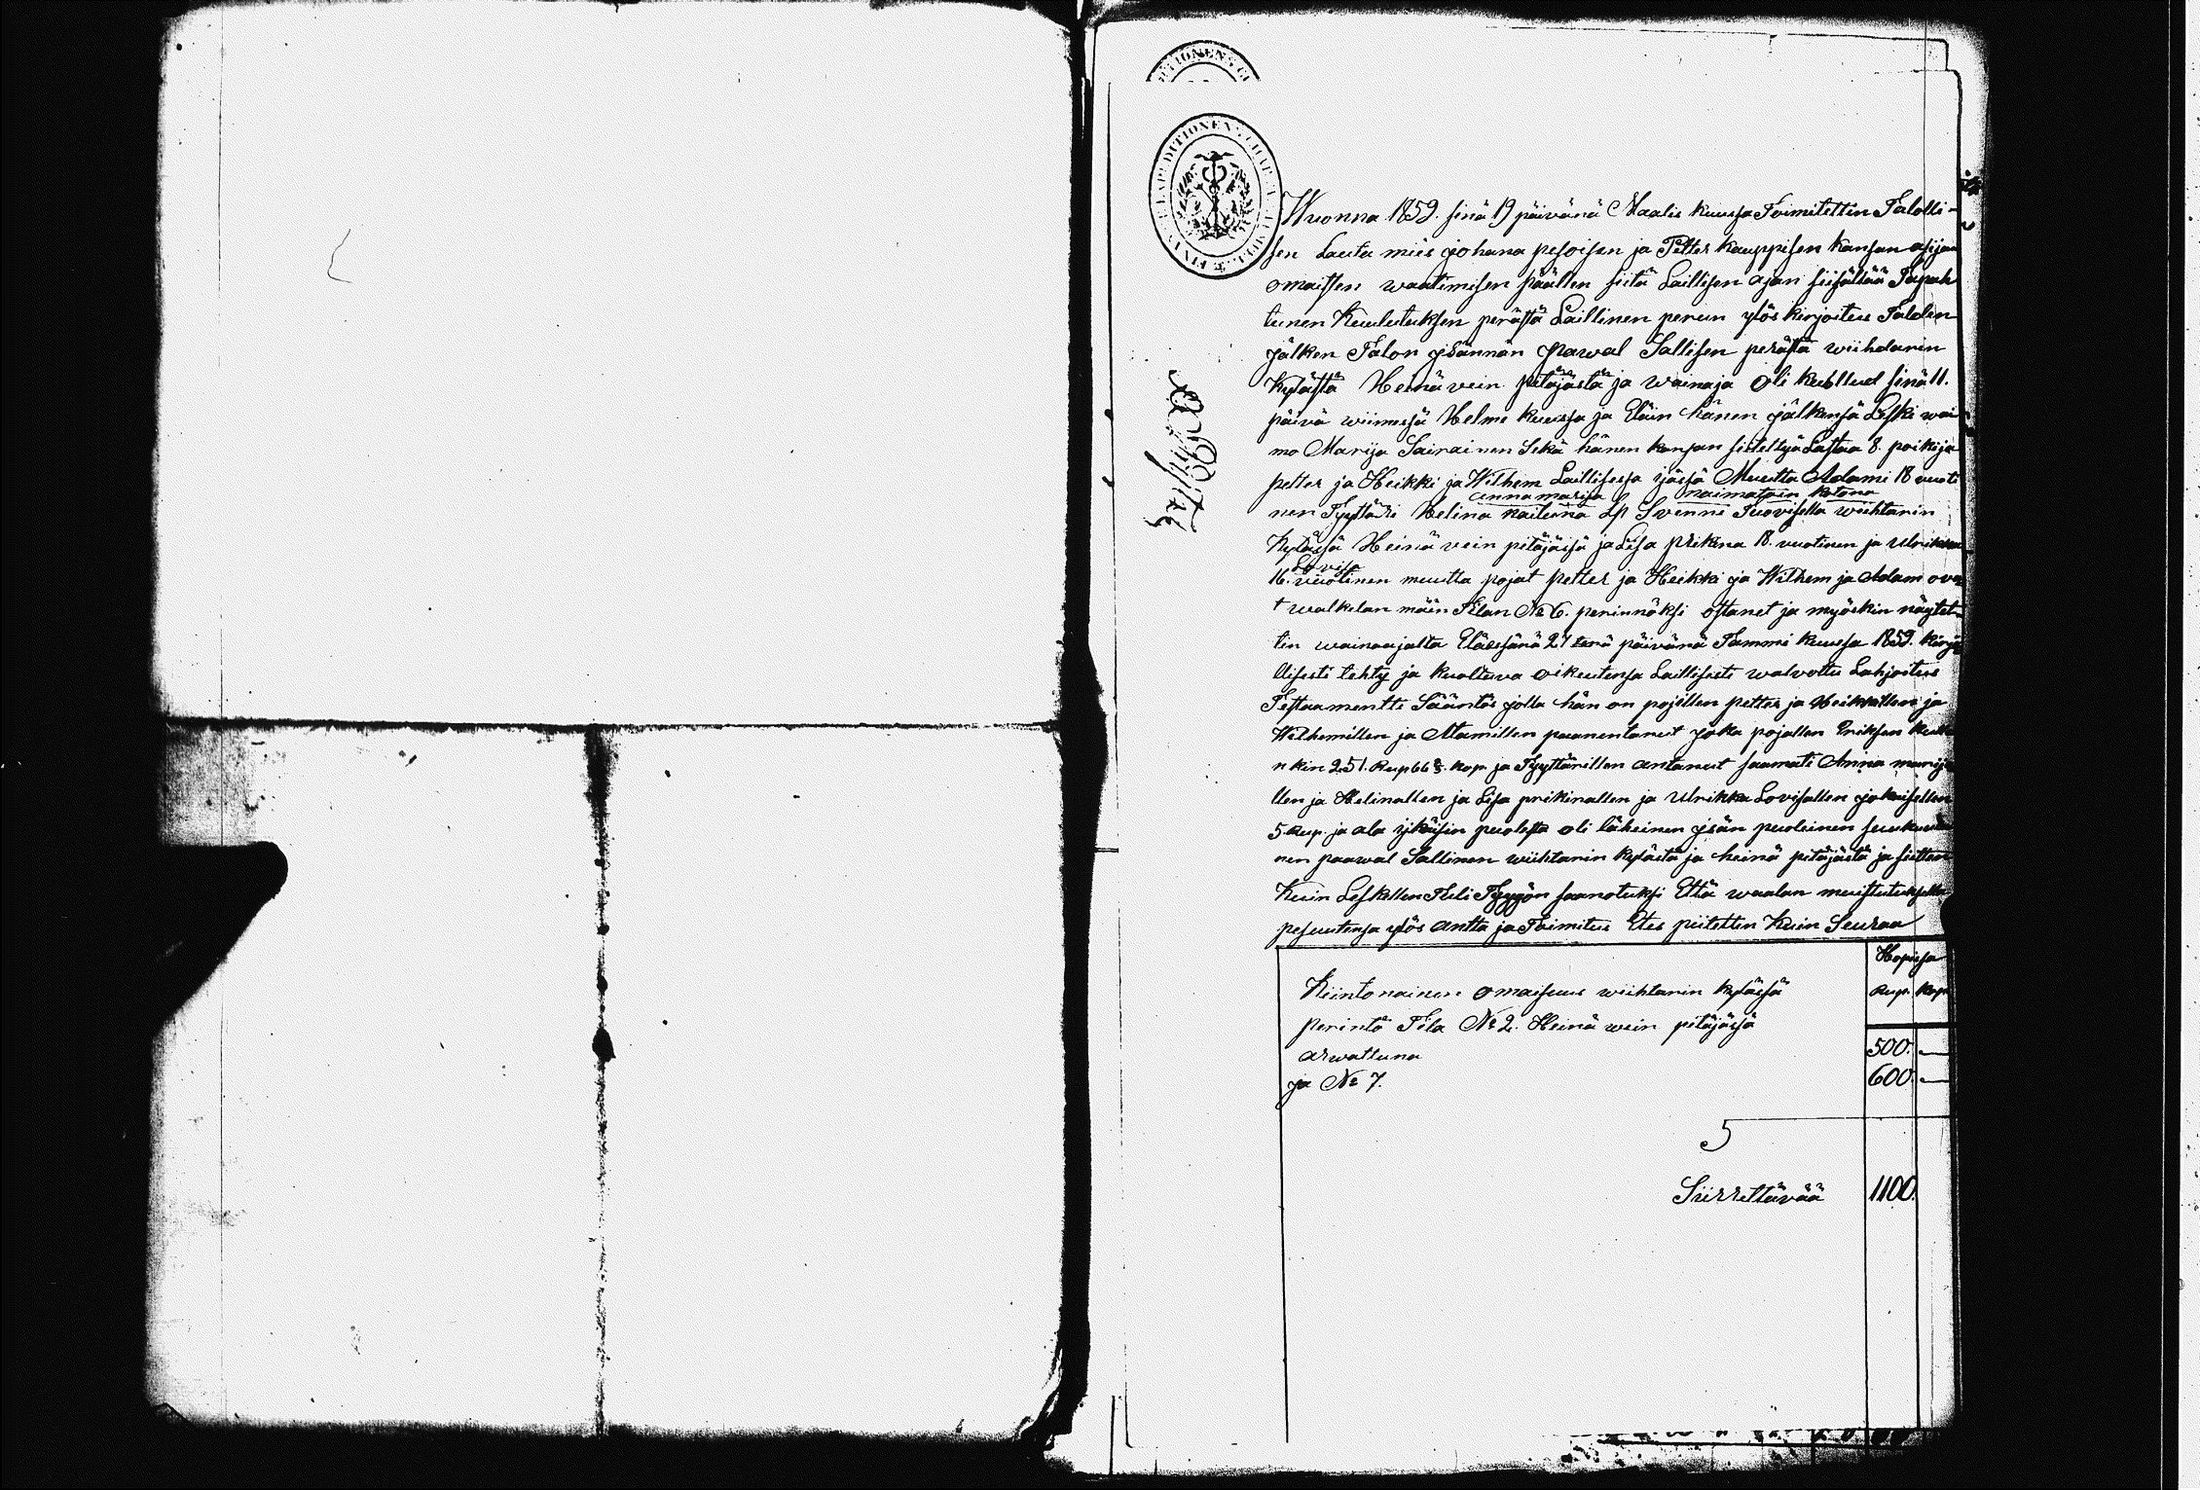 Wuonna 1859. sinä 19 päivänä Maalis kuussa Toimitettin Talolli-
sen Lauta mies johana pesoisen ja Petter kauppisen kansan asijan
omaisten waatimisen päällen siitä Laillisen ajan siisältää Tapah
tunen Kuulutuksen perästä Laillinen perun ylös kirjoitus Talolen
jälken Talon jsännän pawal Sallisen perästä wiihdarin
Kylästä Heinävein pitäjästä ja wainaja oli kuollud sinä 11.
päivä wiimessä Helme kuussa ja Eläin hänen jälkensä Leski wai
mo Marija Sairainen Sekä hänen kansan siiteltyä Lastaa 8. poikija
petter ja Heikki ja Wilhem Laillisessa ijässä Muutta Adami 18 vuoti
anna marija naimatoin kotona
nen Tyyttäri Helina naituna Lp Svenni Tuovisella wiihtarin
Kylässä Heinävein pitäjässä ja Lisa prikina 18. vuotinen ja Ulrikka
Lovisa
16. vuotinen muutta pojat petter ja Heikki ja Wilhem ja Adam ova
t walkilan mäin Tilan № 6. perinnöksi ostanet ja myöskin näytet-
tin wainaajalta Eläessänä 27 tenä päivänä Tammi kuussa 1859. kirja
llisesti tehty ja kuoltuva oikeutensa Laillisesti walvottu Lahjoitus
Testaamentti Sääntös jolla hän on pojillen petter ja Heikkillen ja
Wilhemillen ja Atamillen paranentanut joka pojallen Eriksen kuite
n kin 251. Rup 66 ⅔. kop. ja Tyyttärillen antanut saamati Anna marija
llen ja Helinallen ja Lisa prikinallen ja Ulrikka Lovisallen jokaisellen
5 Rup. ja ala ijkäisin puolesta oli läheinen jsän puoleinen
nen paawal Sallinen wiihtarin kylästä ja heinä pitäjästä ja siitten
Kuin Leskellen Tuli Tyyyön saanotuksi Että waalan muistutuksella
pesuutensa ylös antta ja Toimitus Etes piitettin Kuin Seuraa
Hopiassa
Rup. Kop.
Kiintonainen omaisuus wiihtarin kylässä
perintö Tila № 2. Heinä wein pitäjässä
arwattuna 500. —
ja № 7. 600. —
5
Siirrettävää 1100.